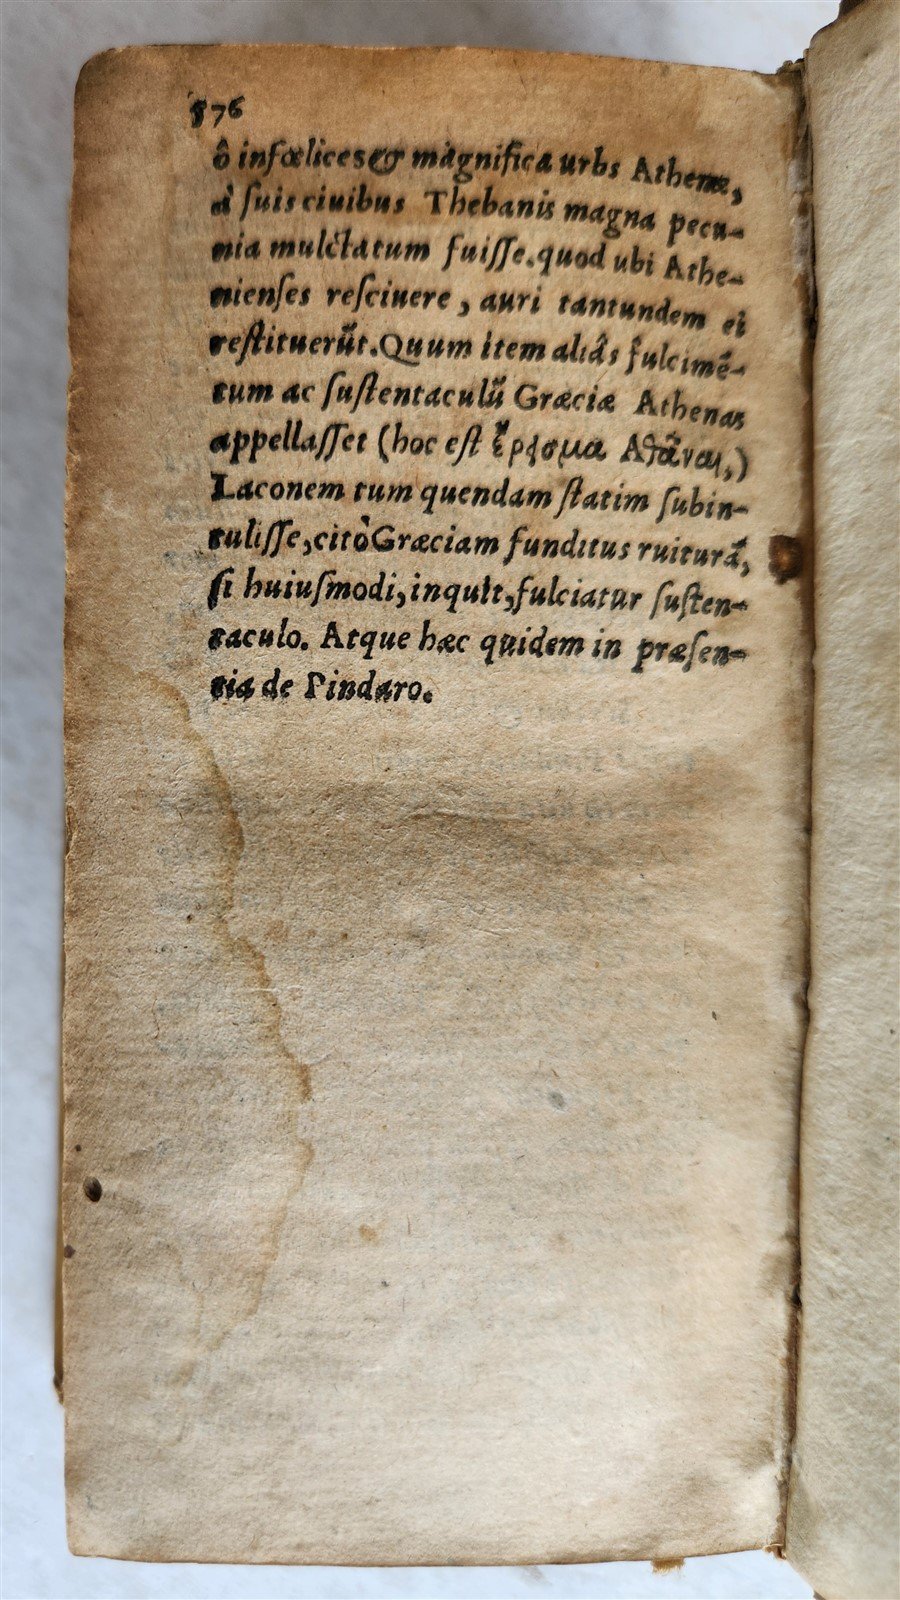 576
ô infœlices & magnifica urbs Athenæ,
à suis ciuibus Thebanis magna pecu-
nia mulctatum fuisse. quod ubi Athe-
nienses resciuere, auri tantundem ei
restituerūt. Quum item aliâs fulcimē-
tum ac sustentaculū Græciæ Athenas
appellasset (hoc est ἔρεισμα Ἀθᾶναι,)
Laconem tum quendam statim subin-
tulisse, citò Græciam funditus ruiturā,
si huiusmodi, inquit, fulciatur susten-
taculo. Atque hæc quidem in præsen-
tia de Pindaro.